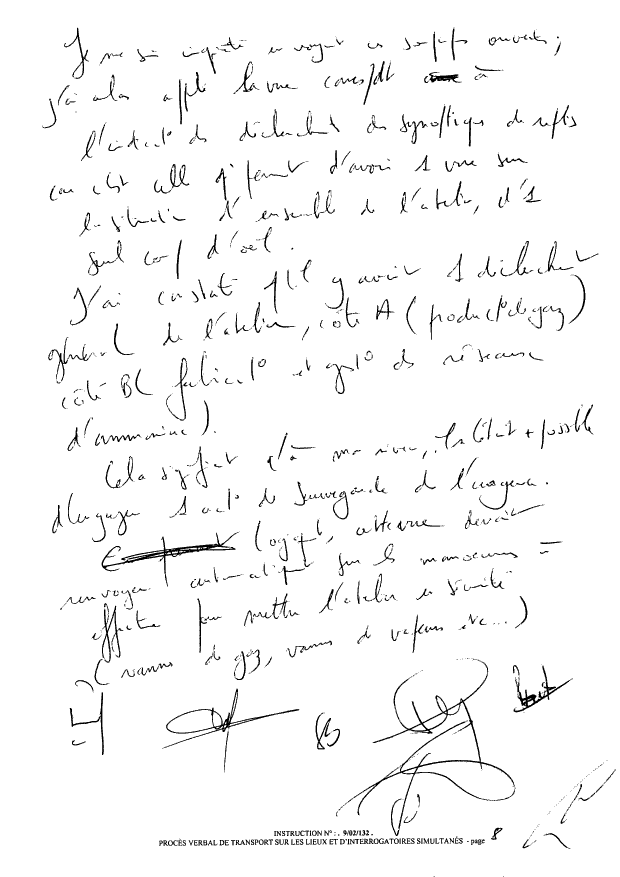 Je me suis inquiété en voyant ces soupapes ouvertes ;
j'ai alors appelé la vue correspdt à
l'indicat° de déclenchent des synoptiques de
car c'est celle q' permet d'avoir 1 vue sur
la situation d'ensemble de l'atelier, d'1
seul coup d'œil.
J'ai constaté q'il y avait 1 déclenchent
général de l'atelier, côté A (product° de gaz)
côté B( fabricat° et des réseaux
d'ammoniac).
Cela signifiait q'à mon niveau, il était + possible
d'engager 1 act° de sauvegarde de l'
(logiqt, devait
renvoyer automatiqt sur les manoeuvres =
effectuées pour mettre l'atelier en sécurité
(vannes de gaz, vannes de vapeurs etc...)
INSTRUCTION N° : . 9/02/132 .
PROCÈS VERBAL DE TRANSPORT SUR LES LIEUX ET D'INTERROGATOIRES SIMULTANÉS - page 8